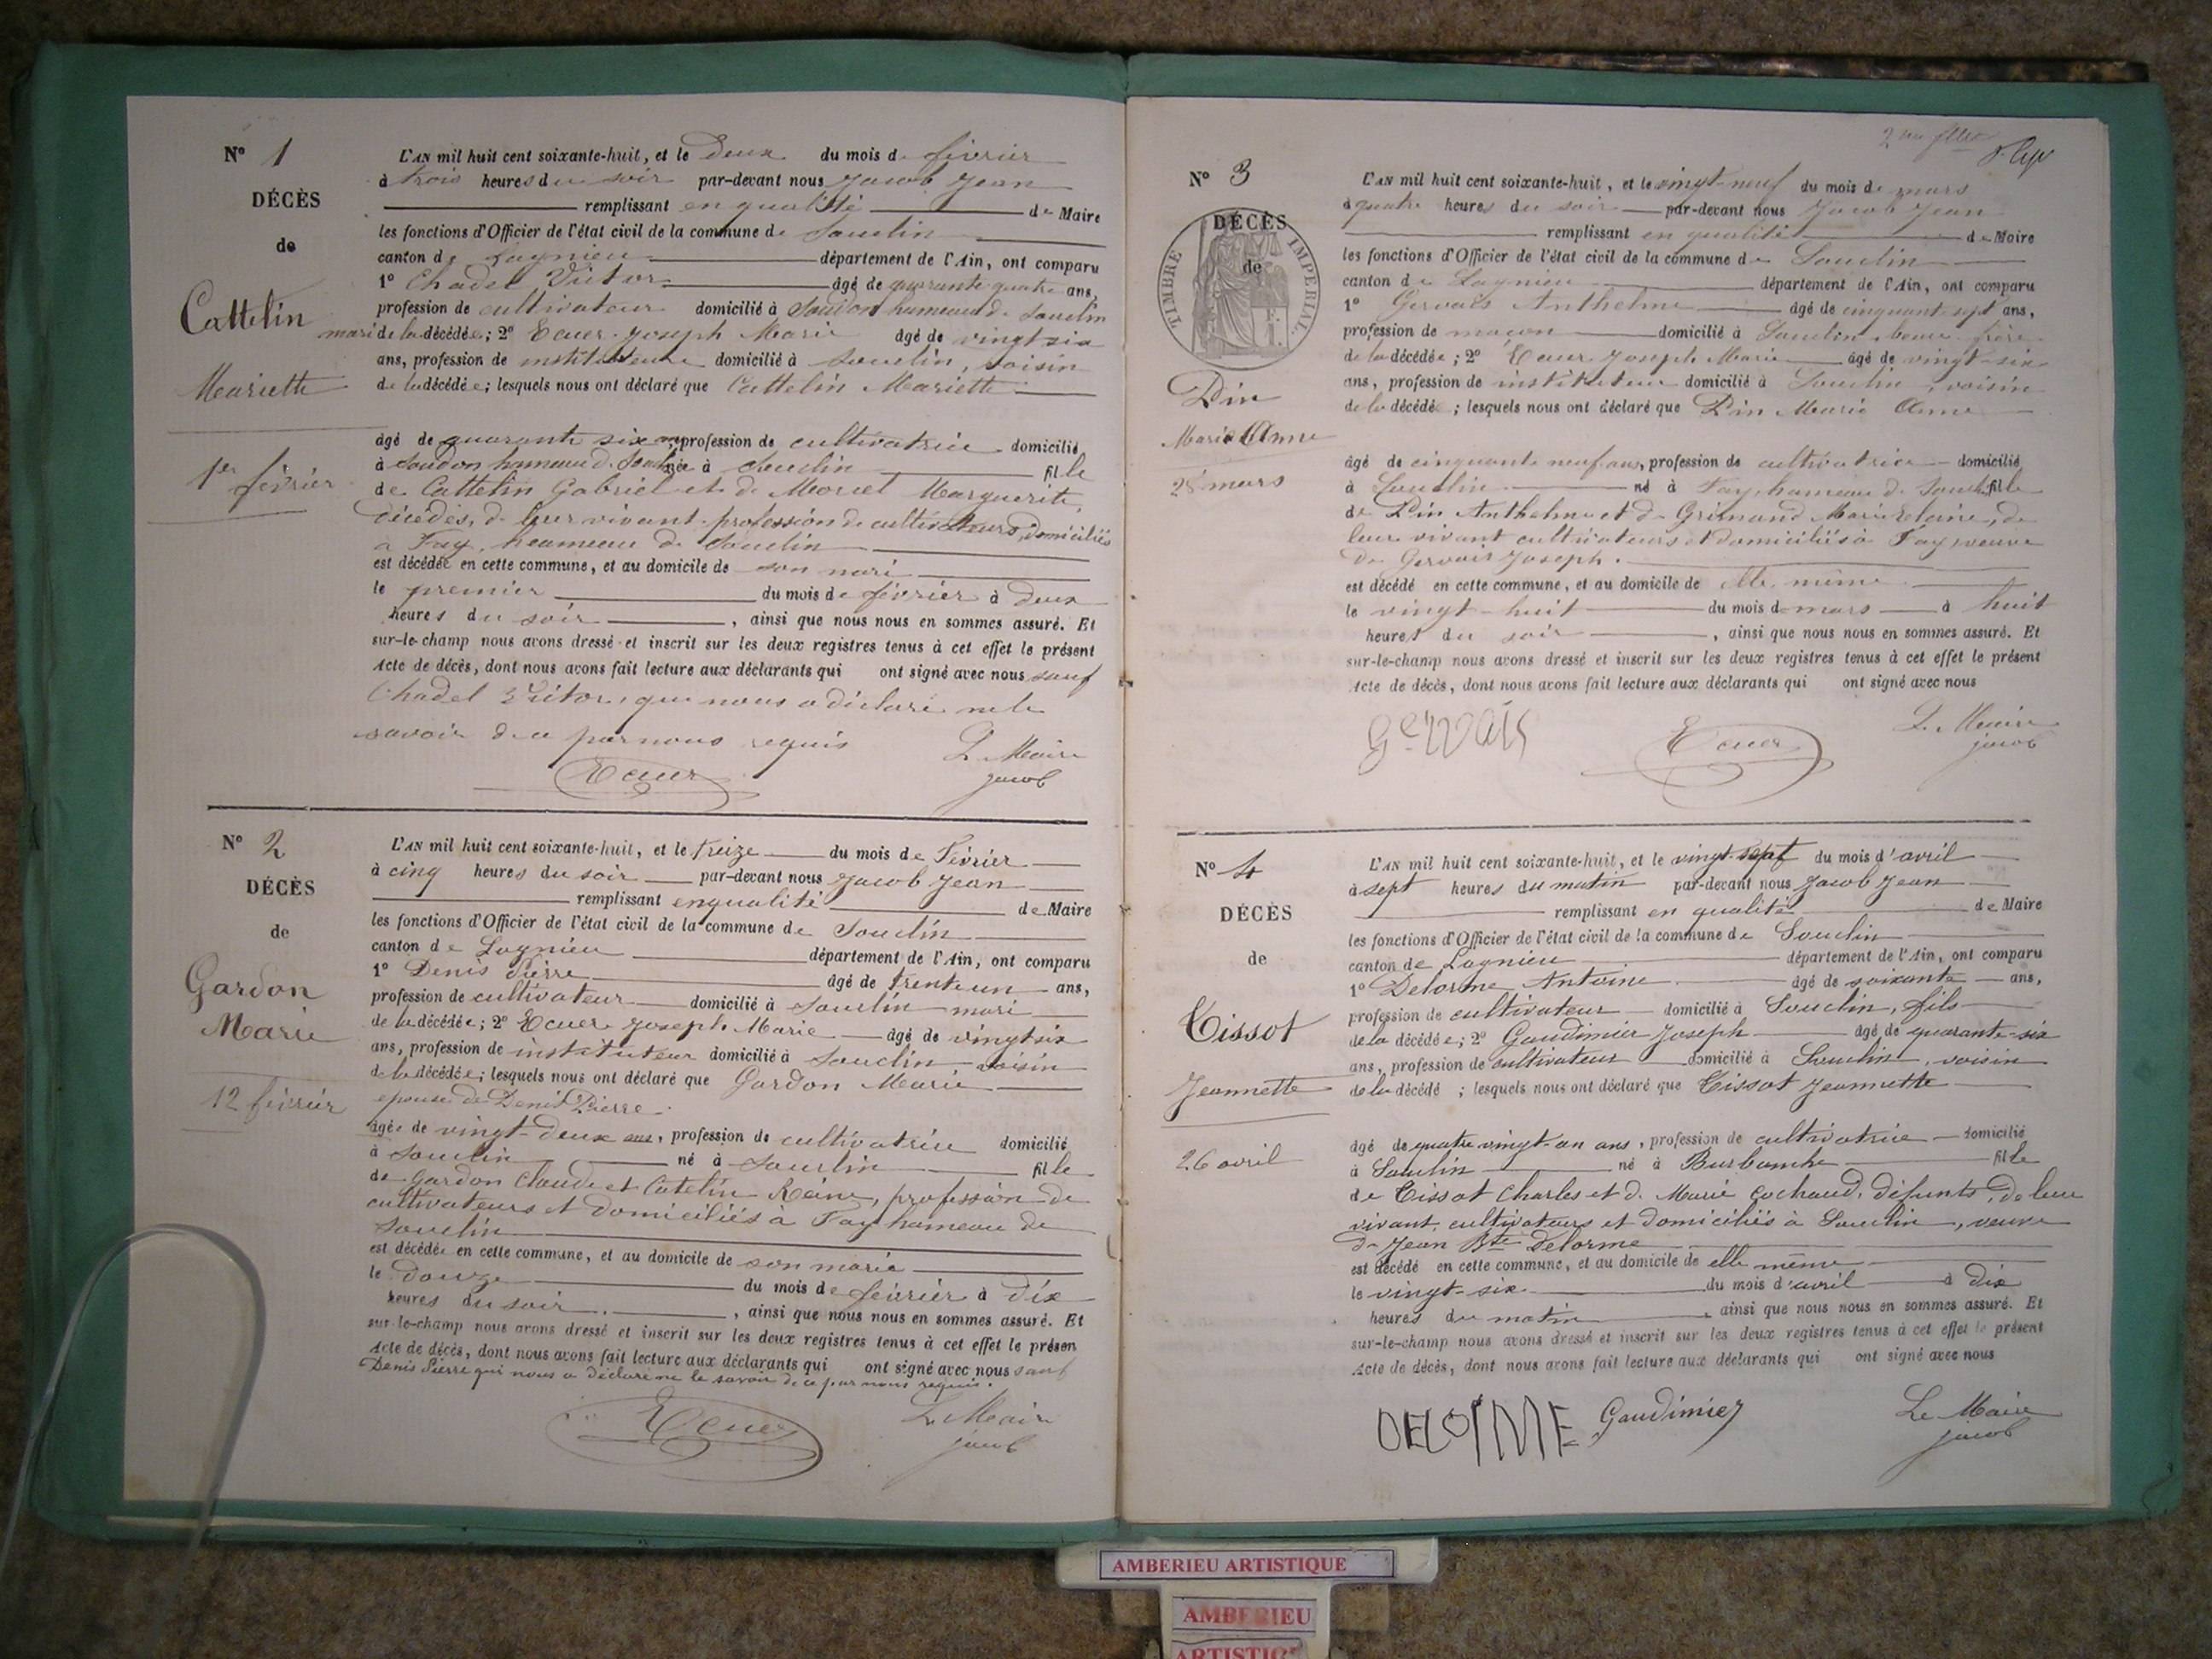 N° 1
DÉCÈS
de
Cattelin
Mariette
1er février
L'AN mil huit cent soixante-huit, et le Deux du mois de février
à trois heures du soir par-devant nous Jacob Jean
remplissant en qualité de Maire
les fonctions d'Officier de l'état civil de la commune de Souclin
canton de Lagnieu département de l'Ain, ont comparu
1° Chadel Victor âgé de quarante quatre ans,
profession de cultivateur domicilié à Soudon hameau de Souclin
mari de la décédée; 2° Ecuer Joseph Marie âgé de vingt six
ans, profession de instituteur domicilié à Souclin, voisin
de la décédée; lesquels nous ont déclaré que Cattelin Mariette
âgé de quarante six ans, profession de cultivatrice domicilié
à Soudon hameau de née à Souclin fille
de Cattelin Gabriel et de Morcel Marguerite,
décédés, de leur vivant profession de cultivateurs, domiciliés
à Fay, heameau de Souclin
est décédée en cette commune, et au domicile de son mari
le premier du mois de février à deux
heures du soir, ainsi que nous nous en sommes assuré. Et
sur-le-champ nous avons dressé et inscrit sur les deux registres tenus à cet effet le présent
Acte de décès, dont nous avons fait lecture aux déclarants qui ont signé avec nous sauf
Chadel Victor, qui nous a déclaré ne le
savoir de ce par nous requis
Ecuer Le Maire
Jacob
N° 2
DÉCÈS
de
Gardon
Marie
12 février
L'AN mil huit cent soixante-huit, et le treize du mois de Février
à cinq heures du soir par-devant nous Jacob Jean
remplissant en qualité de Maire
les fonctions d'Officier de l'état civil de la commune de Souclin
canton de Lagnieu département de l'Ain, ont comparu
1° Denis Pierre âgé de trente un ans,
profession de cultivateur domicilié à Souclin mari
de la décédée; 2° Ecuer Joseph Marie âgé de vingt six
ans, profession de instituteur domicilié à Souclin voisin
de la décédée; lesquels nous ont déclaré que Gardon Marie
epouse de Denis Pierre
âgée de vingt-deux ans, profession de cultivatrice domicilié
à Souclin né à Souclin fille
de Gardon Claude et Catelin Reine, profession de
cultivateurs et domiciliés à Fay hameau de
Souclin
est décédée en cette commune, et au domicile de son marie
le douze du mois de février à dix
heures du soir, ainsi que nous nous en sommes assuré. Et
sur-le-champ nous avons dressé et inscrit sur les deux registres tenus à cet effet le présen
Acte de décès, dont nous avons fait lecture aux déclarants qui ont signé avec nous sauf
Denis Pierre qui nous a déclaré ne le savoir de ce par nous requis.
Ecuer Le Maire
Jacob
N° 3
DÉCÈS
de
TIMBRE IMPERIAL
Pin
Marie Anne
28 mars
L'AN mil huit cent soixante-huit, et le vingt-neuf du mois de mars
à quatre heures du soir par-devant nous Jacob Jean
remplissant en qualité de Maire
les fonctions d'Officier de l'état civil de la commune de Souclin
canton de Lagnieu département de l'Ain, ont comparu
1° Gervais Anthelme âgé de cinquante sept ans,
profession de maçon domicilié à Souclin beau frère
de la décédée; 2° Ecuer Joseph Marie âgé de vingt-six
ans, profession de instituteur domicilié à Souclin, voisin
de la décédé; lesquels nous ont déclaré que Pin Marie Anne
âgé de cinquante neuf ans, profession de cultivatrice domicilié
à Souclin né à Fay hameau de Souclin fille
de Pin Anthelme et de Grimand Marie, de
leur vivant cultivateurs et domiciliés à Fay, veuve
de Gervais Joseph.
est décédé en cette commune, et au domicile de elle même
le vingt-huit du mois de mars à huit
heures du soir, ainsi que nous nous en sommes assuré. Et
sur-le-champ nous avons dressé et inscrit sur les deux registres tenus à cet effet le présent
Acte de décès, dont nous avons fait lecture aux déclarants qui ont signé avec nous
Gervais Ecuer Le Maire
Jacob
N° 4
DÉCÈS
de
Tissot
Jeannette
26 avril
L'AN mil huit cent soixante-huit, et le vingt-sept du mois d'avril
à sept heures du matin par-devant nous Jacob Jean
remplissant en qualité de Maire
les fonctions d'Officier de l'état civil de la commune de Souclin
canton de Lagnieu département de l'Ain, ont comparu
1° Delorme Antoine âgé de soixante ans,
profession de cultivateur domicilié à Souclin, fils
de la décédée; 2° Gaudimier Joseph âgé de quarante-six
ans, profession de cultivateur domicilié à Souclin, voisin
de la décédé; lesquels nous ont déclaré que Tissot Jeannette
âgé de quatre vingt-un ans, profession de cultivatrice domicilié
à Souclin né à Burbanche fille
de Tissot Charles et de Marie Cochaud, défunts, de leur
vivant, cultivateurs et domiciliés à Souclin, veuve
de Jean Bte Delorme
est décédé en cette commune, et au domicile de elle même
le vingt-six du mois d'avril à dix
heures du matin, ainsi que nous nous en sommes assuré. Et
sur-le-champ nous avons dressé et inscrit sur les deux registres tenus à cet effet le présent
Acte de décès, dont nous avons fait lecture aux déclarants qui ont signé avec nous
DELORME Gaudimier Le Maire
Jacob
AMBERIEU ARTISTIQUE
AMBERIEU
ARTISTIQ